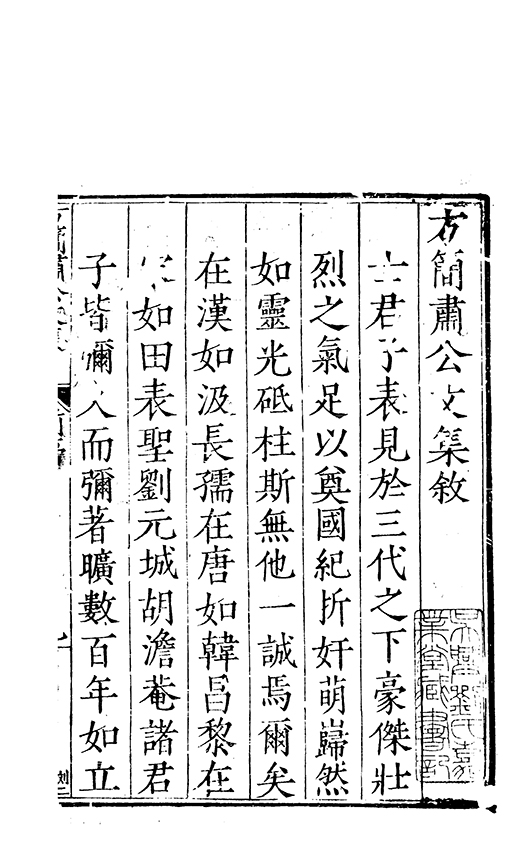 方簡肅公文集敘
士君子表見於三代之下豪傑壯
烈之氣足以奠國紀折奸萌巋然
如靈光砥柱斯無他一誠焉爾矣
在漢如汲長孺在唐如韓昌黎在
宋如田表聖劉元城胡澹菴諸君
子皆彌久而彌著曠數百年如立